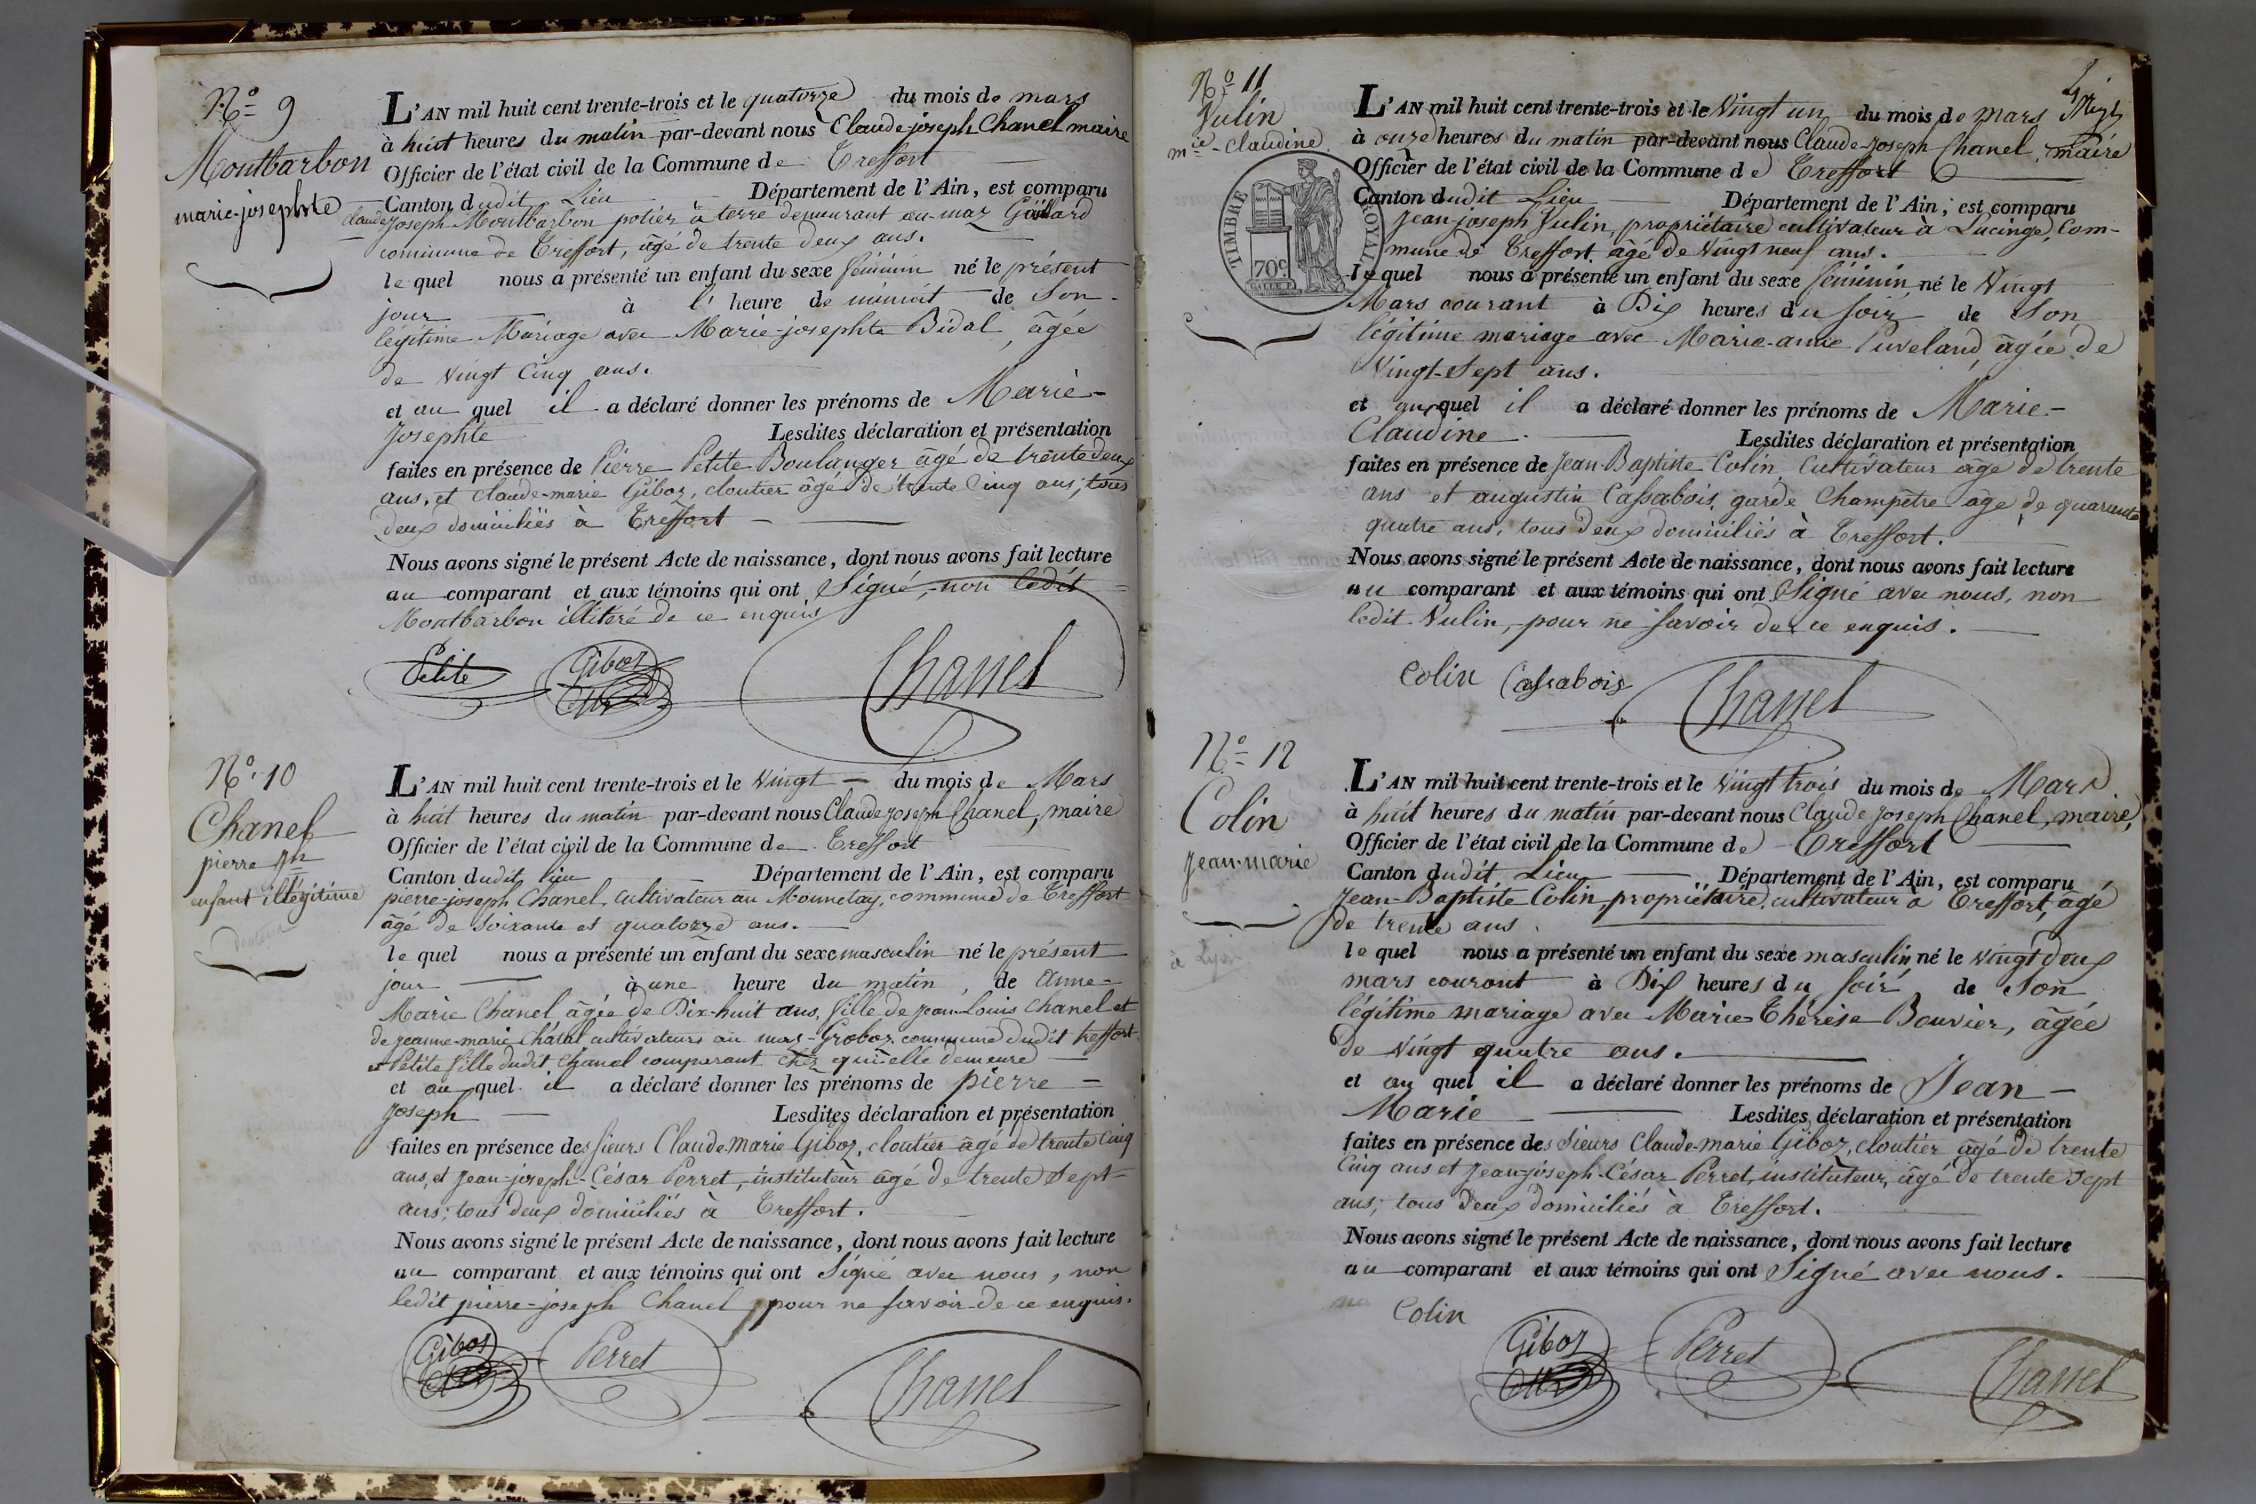 N.º 9
Montbarbon
marie-josephte
L'AN mil huit cent trente-trois et le quatorze du mois de mars
à huit heures du matin par-devant nous Claude joseph Chanel maire
Officier de l'état civil de la Commune de Treffort
Canton dudit Lieu Département de l'Ain, est comparu
claude Joseph Montbarbon potier à terre demeurant au maz
commune de Treffort, âgé de trente deux ans.
lequel nous a présenté un enfant du sexe féminin né le présent
jour à l'heure de minuit de Son
légitime Mariage avec Marie-josephte Bidal, âgée
de vingt Cinq ans.
et au quel il a déclaré donner les prénoms de Marie-
Josephte Lesdites déclaration et présentation
faites en présence de Pierre Petite Boulanger âgé de trente deux
ans, et claude-marie Giboz, cloutier âgé de trente Cinq ans, tous
deux domiciliés à Treffort
Nous avons signé le présent Acte de naissance, dont nous avons fait lecture
au comparant et aux témoins qui ont Signé, non ledit
Montbarbon illiteré de ce enquis
Petite Giboz Chanel
N.º 10
Chanel
pierre jph
enfant illégitime
L'AN mil huit cent trente-trois et le vingt du mois de Mars
à huit heures du matin par-devant nous Claude joseph Chanel, maire
Officier de l'état civil de la Commune de Treffort
Canton dudit lieu Département de l'Ain, est comparu
pierre-joseph Chanel, cultivateur au Mounetay, commune de Treffort
âgé de Soixante et quatorze ans.
lequel nous a présenté un enfant du sexe masculin né le présent
jour à une heure du matin, de Anne-
Marie Chanel âgée de Dix-huit ans, fille de Jean-Louis Chanel et
de jeanne-marie Châtel cultivateurs au mas-Groboz commune dudit treffort
et Petite fille dudit Chanel comparant chez qui elle demeure
et au quel il a déclaré donner les prénoms de pierre-
Joseph Lesdites déclaration et présentation
faites en présence des sieurs Claude-Marie Giboz, cloutier âgé de trente Cinq
ans, et Jean-joseph-César Perret, instituteur âgé de trente Sept
ans; tous deux domiciliés à Treffort.
Nous avons signé le présent Acte de naissance, dont nous avons fait lecture
au comparant et aux témoins qui ont Signé avec nous, non
ledit pierre-joseph Chanel, pour ne savoir de ce enquis.
Giboz Perret Chanel
N.º 11
Vulin
mie-Claudine
TIMBRE ROYAL
70c
L'AN mil huit cent trente-trois et le Vingt un du mois de mars
à onze heures du matin par-devant nous Claude-Joseph Chanel, maire
Officier de l'état civil de la Commune de Treffort
Canton dudit Lieu Département de l'Ain, est comparu
Jean-joseph Vulin, propriétaire cultivateur à Lucinge, Com-
mune de Treffort, âgé de vingt neuf ans.
lequel nous a présenté un enfant du sexe féminin né le Vingt
Mars courant à Dix heures du soir de Son
légitime mariage avec Marie-anne Puveland, âgée de
Vingt-Sept ans.
et au quel il a déclaré donner les prénoms de Marie-
Claudine Lesdites déclaration et présentation
faites en présence de Jean-Baptiste Colin, Cultivateur âgé de trente
ans et augustin Cassabois, garde Champêtre âgé de quarante
quatre ans, tous deux domiciliés à Treffort.
Nous avons signé le présent Acte de naissance, dont nous avons fait lecture
au comparant et aux témoins qui ont Signé avec nous, non
ledit Vulin, pour ne savoir de ce enquis.
Colin Cassabois Chanel
N.º 12
Colin
Jean-marie
L'AN mil huit cent trente-trois et le vingt trois du mois de Mars
à huit heures du matin par-devant nous Claude Joseph Chanel, maire,
Officier de l'état civil de la Commune de Treffort
Canton dudit Lieu Département de l'Ain, est comparu
Jean-Baptiste Colin, propriétaire, cultivateur à Treffort, âgé
de trente ans
lequel nous a présenté un enfant du sexe masculin né le vingt deux
mars courant à Dix heures du soir de Son
légitime mariage avec Marie Thérèse Bouvier, âgée
de vingt quatre ans.
et au quel il a déclaré donner les prénoms de Jean-
Marie Lesdites déclaration et présentation
faites en présence des Sieurs Claude-marie Giboz, cloutier âgé de trente
Cinq ans et Jean-joseph-César Perret, instituteur, âgé de trente Sept
ans; tous deux domiciliés à Treffort.
Nous avons signé le présent Acte de naissance, dont nous avons fait lecture
au comparant et aux témoins qui ont Signé avec nous.
Colin Giboz Perret Chanel